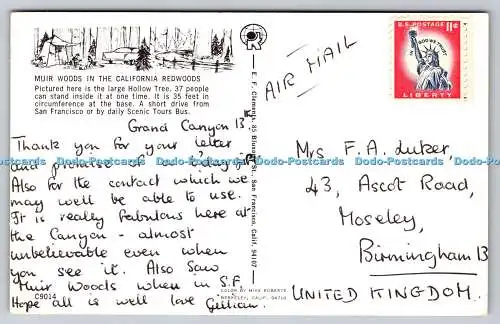 MUIR WOODS IN THE CALIFORNIA REDWOODS
Pictured here is the large Hollow Tree. 37 people
can stand inside it at one time. It is 35 feet in
circumference at the base. A short drive from
San Francisco or by daily Scenic Tours Bus.
Grand Canyon 13
Thank you for your letter
and promise of
Also for the contact which we
may well be able to use.
It is really fabulous here at
the Canyon - almost
unbelievable even when
you see it. Also Saw
Muir Woods when in S.F.
Hope all is well love Gillian.
C9014
COLOR BY MIKE ROBERTS
BERKELEY, CALIF. 94710
E. F. Clements, San Francisco, Calif. 94107
AIR MAIL
U.S. POSTAGE 11¢
IN GOD WE TRUST
LIBERTY
Mrs F. A. Luker,
43, Ascot Road,
Moseley,
Birmingham 13
UNITED KINGDOM.
Dodo-Postcards Dodo-Postcards Dodo-Postcards Dodo-Postcards Dodo-Postcards